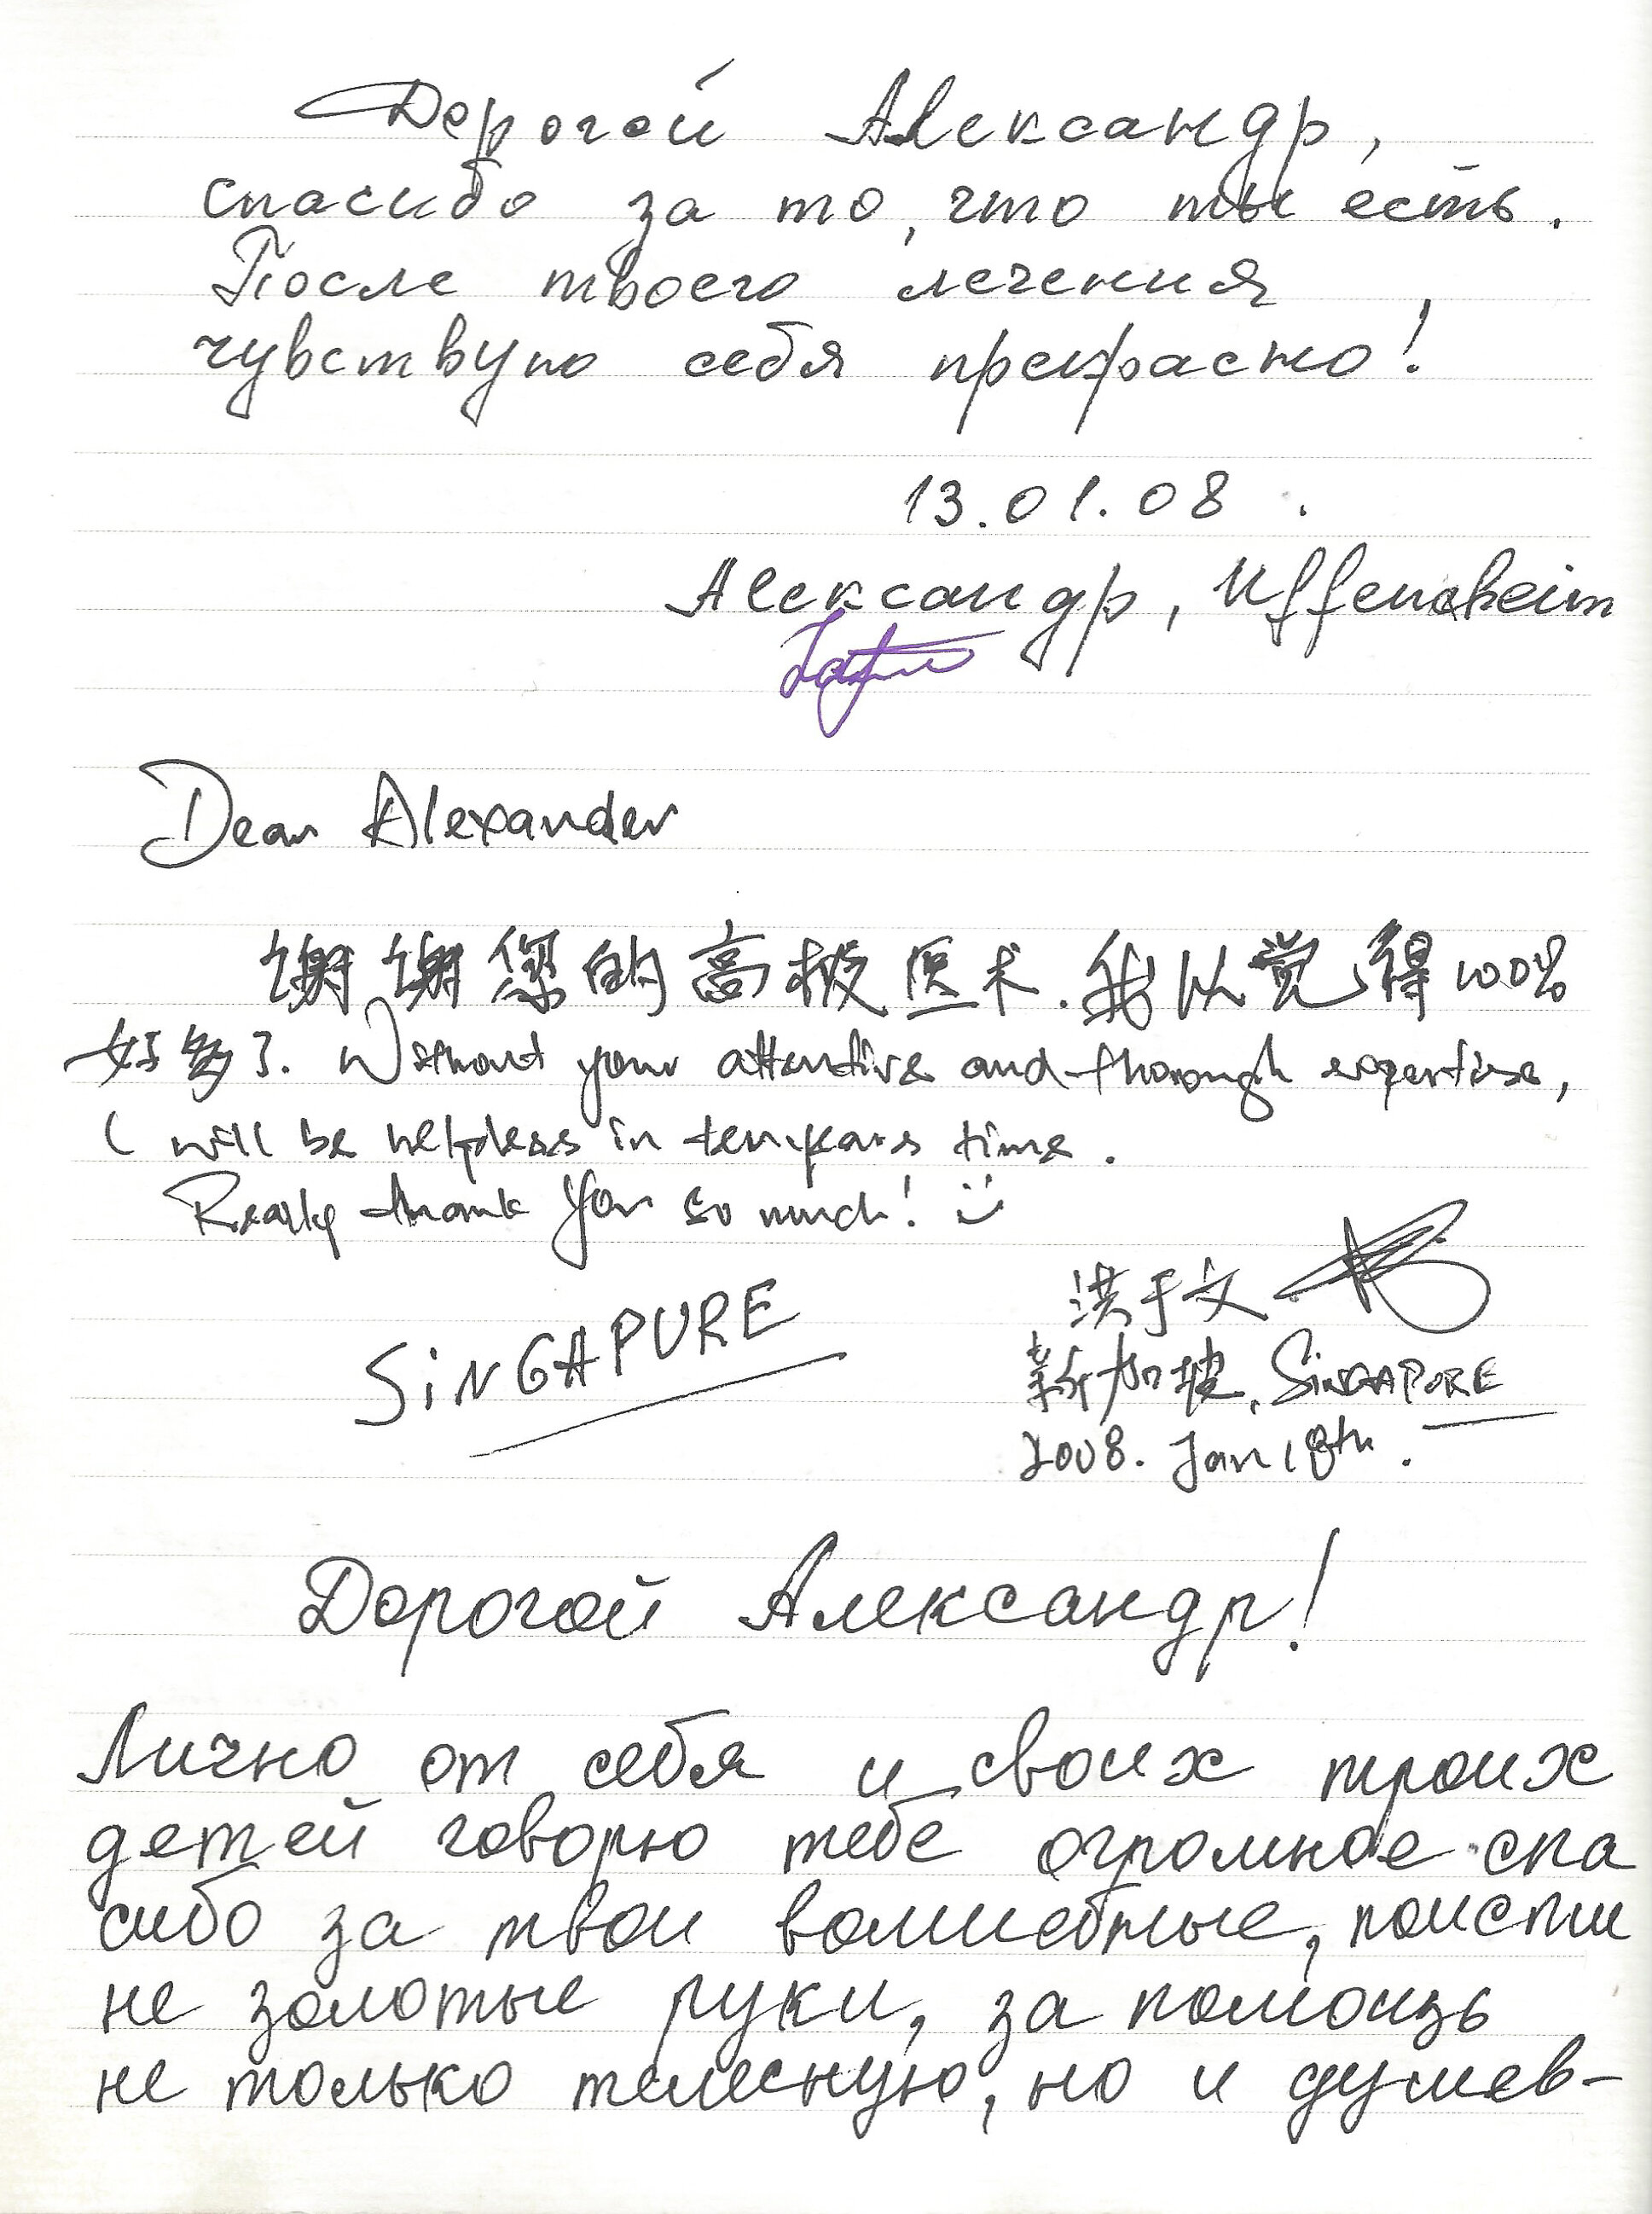 Дорогой Александр,
спасибо за то, что ты есть.
После твоего лечения
чувствую себя прекрасно!
13.01.08.
Александр, Uffenheim
Dear Alexander
谢谢您的高极医术.我以觉得100%
好多了. Without your attentive and thorough expertise,
I will be helpless in ten years time.
Really thank you so much! :)
洪于文
SiNGAPURE
新加坡, SiNGAPORE
2008. Jan 18th.
Дорогой Александр!
Лично от себя и своих троих
детей говорю тебе огромное спа
сибо за твои волшебные, поисти
не золотые руки, за помощь
не только телесную, но и душев-